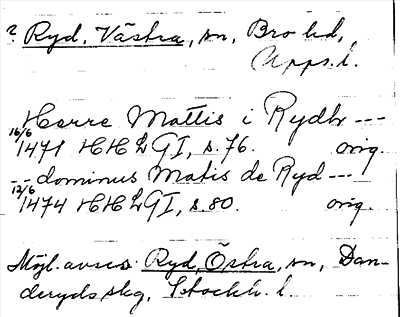 ? Ryd, Västra, sn, Bro hd,
Upps. l.
Herre Mattis i Rydh ---
16/6 1471 HH L G I, s. 76. orig.
-- dominus Matis de Ryd ---
12/6 1474 HH L G I, s. 80. orig.
Möjl. avses Ryd, Östra, sn, Dan-
deryds skg, Stockh. l.